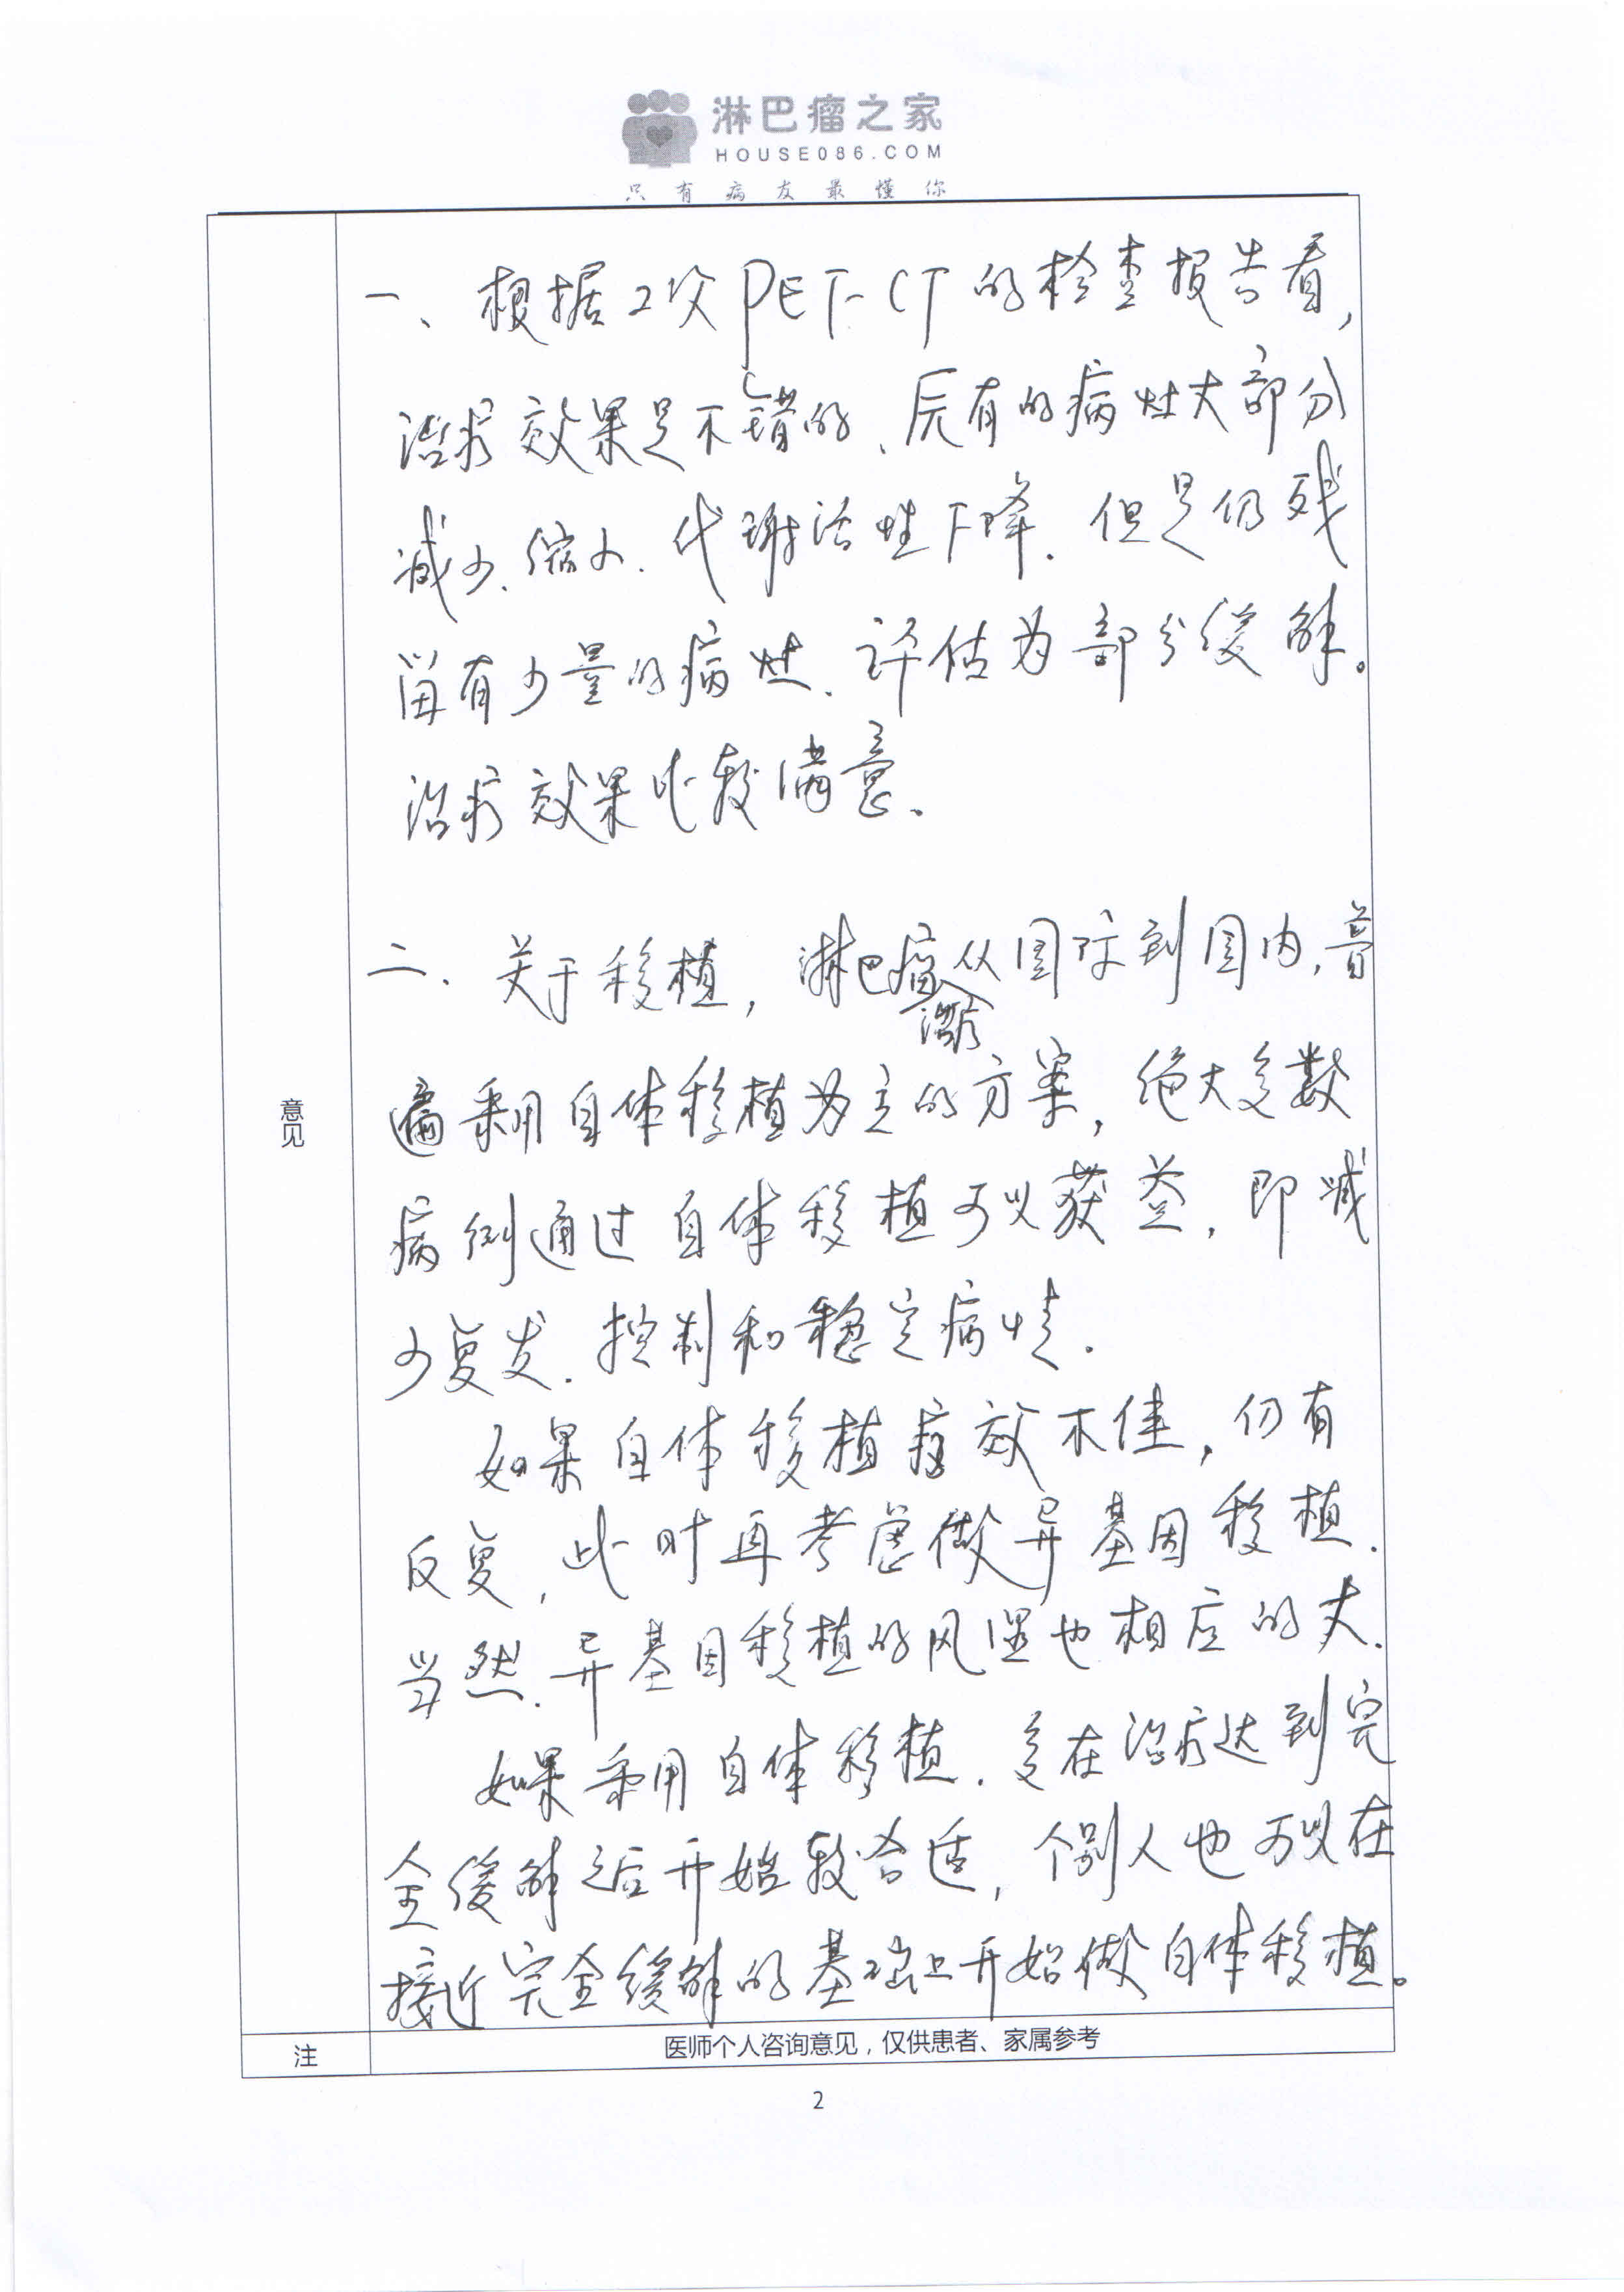 淋巴瘤之家
HOUSE086.COM
只有病友最懂你
一、根据2次PET-CT的检查报告看,
治疗效果是不错的、原有的病灶大部分
减少、缩小、代谢活性下降.但是仍残
留有少量的病灶.评估为部分缓解。
治疗效果比较满意。
二、关于移植,淋巴瘤治疗从国际到国内,普
遍采用自体移植为主的方案,绝大多数
病例通过自体移植可以获益,即减
少复发.控制和稳定病情.
如果自体移植疗效不佳,仍有
反复,此时再考虑做异基因移植.
当然.异基因移植的风险也相应的大.
如果采用自体移植.多在治疗达到完
全缓解之后开始较合适,个别人也可以在
接近完全缓解的基础上开始做自体移植。
意见
注
医师个人咨询意见,仅供患者、家属参考
2